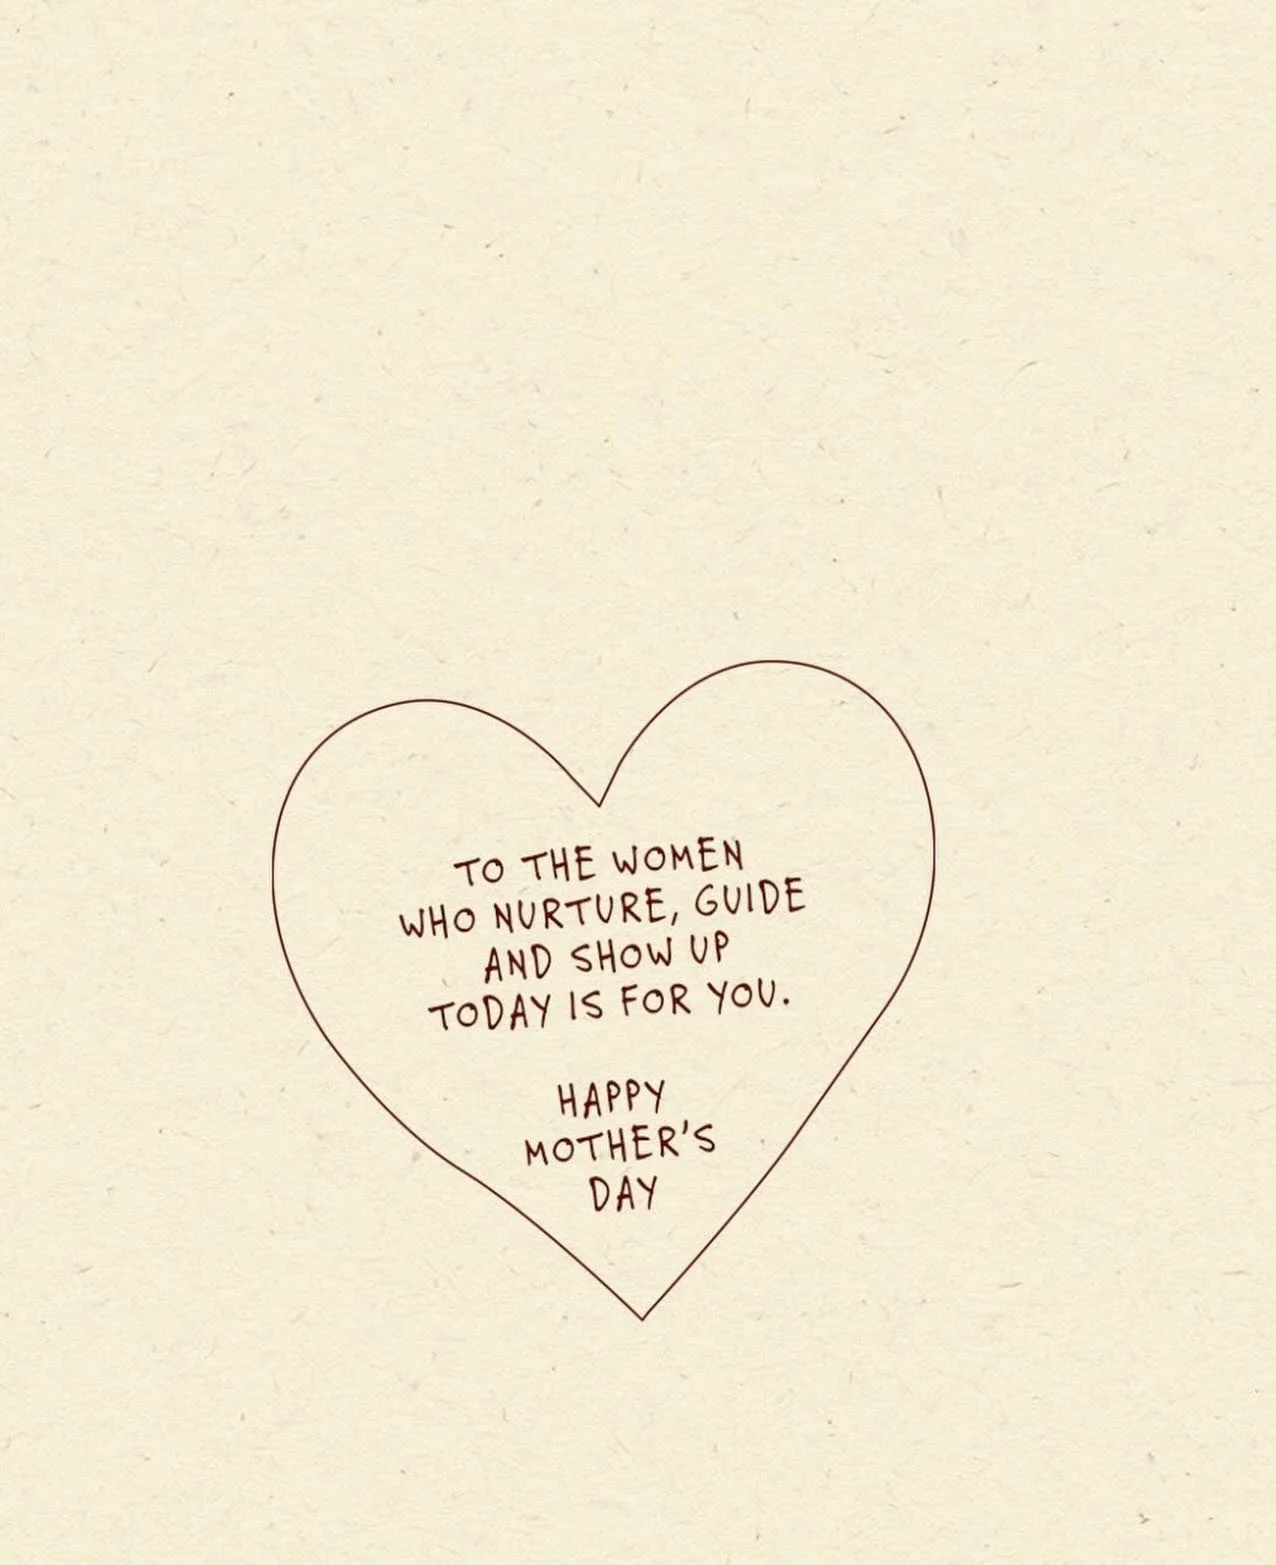 TO THE WOMEN
WHO NURTURE, GUIDE
AND SHOW UP
TODAY IS FOR YOU.
HAPPY
MOTHER'S
DAY